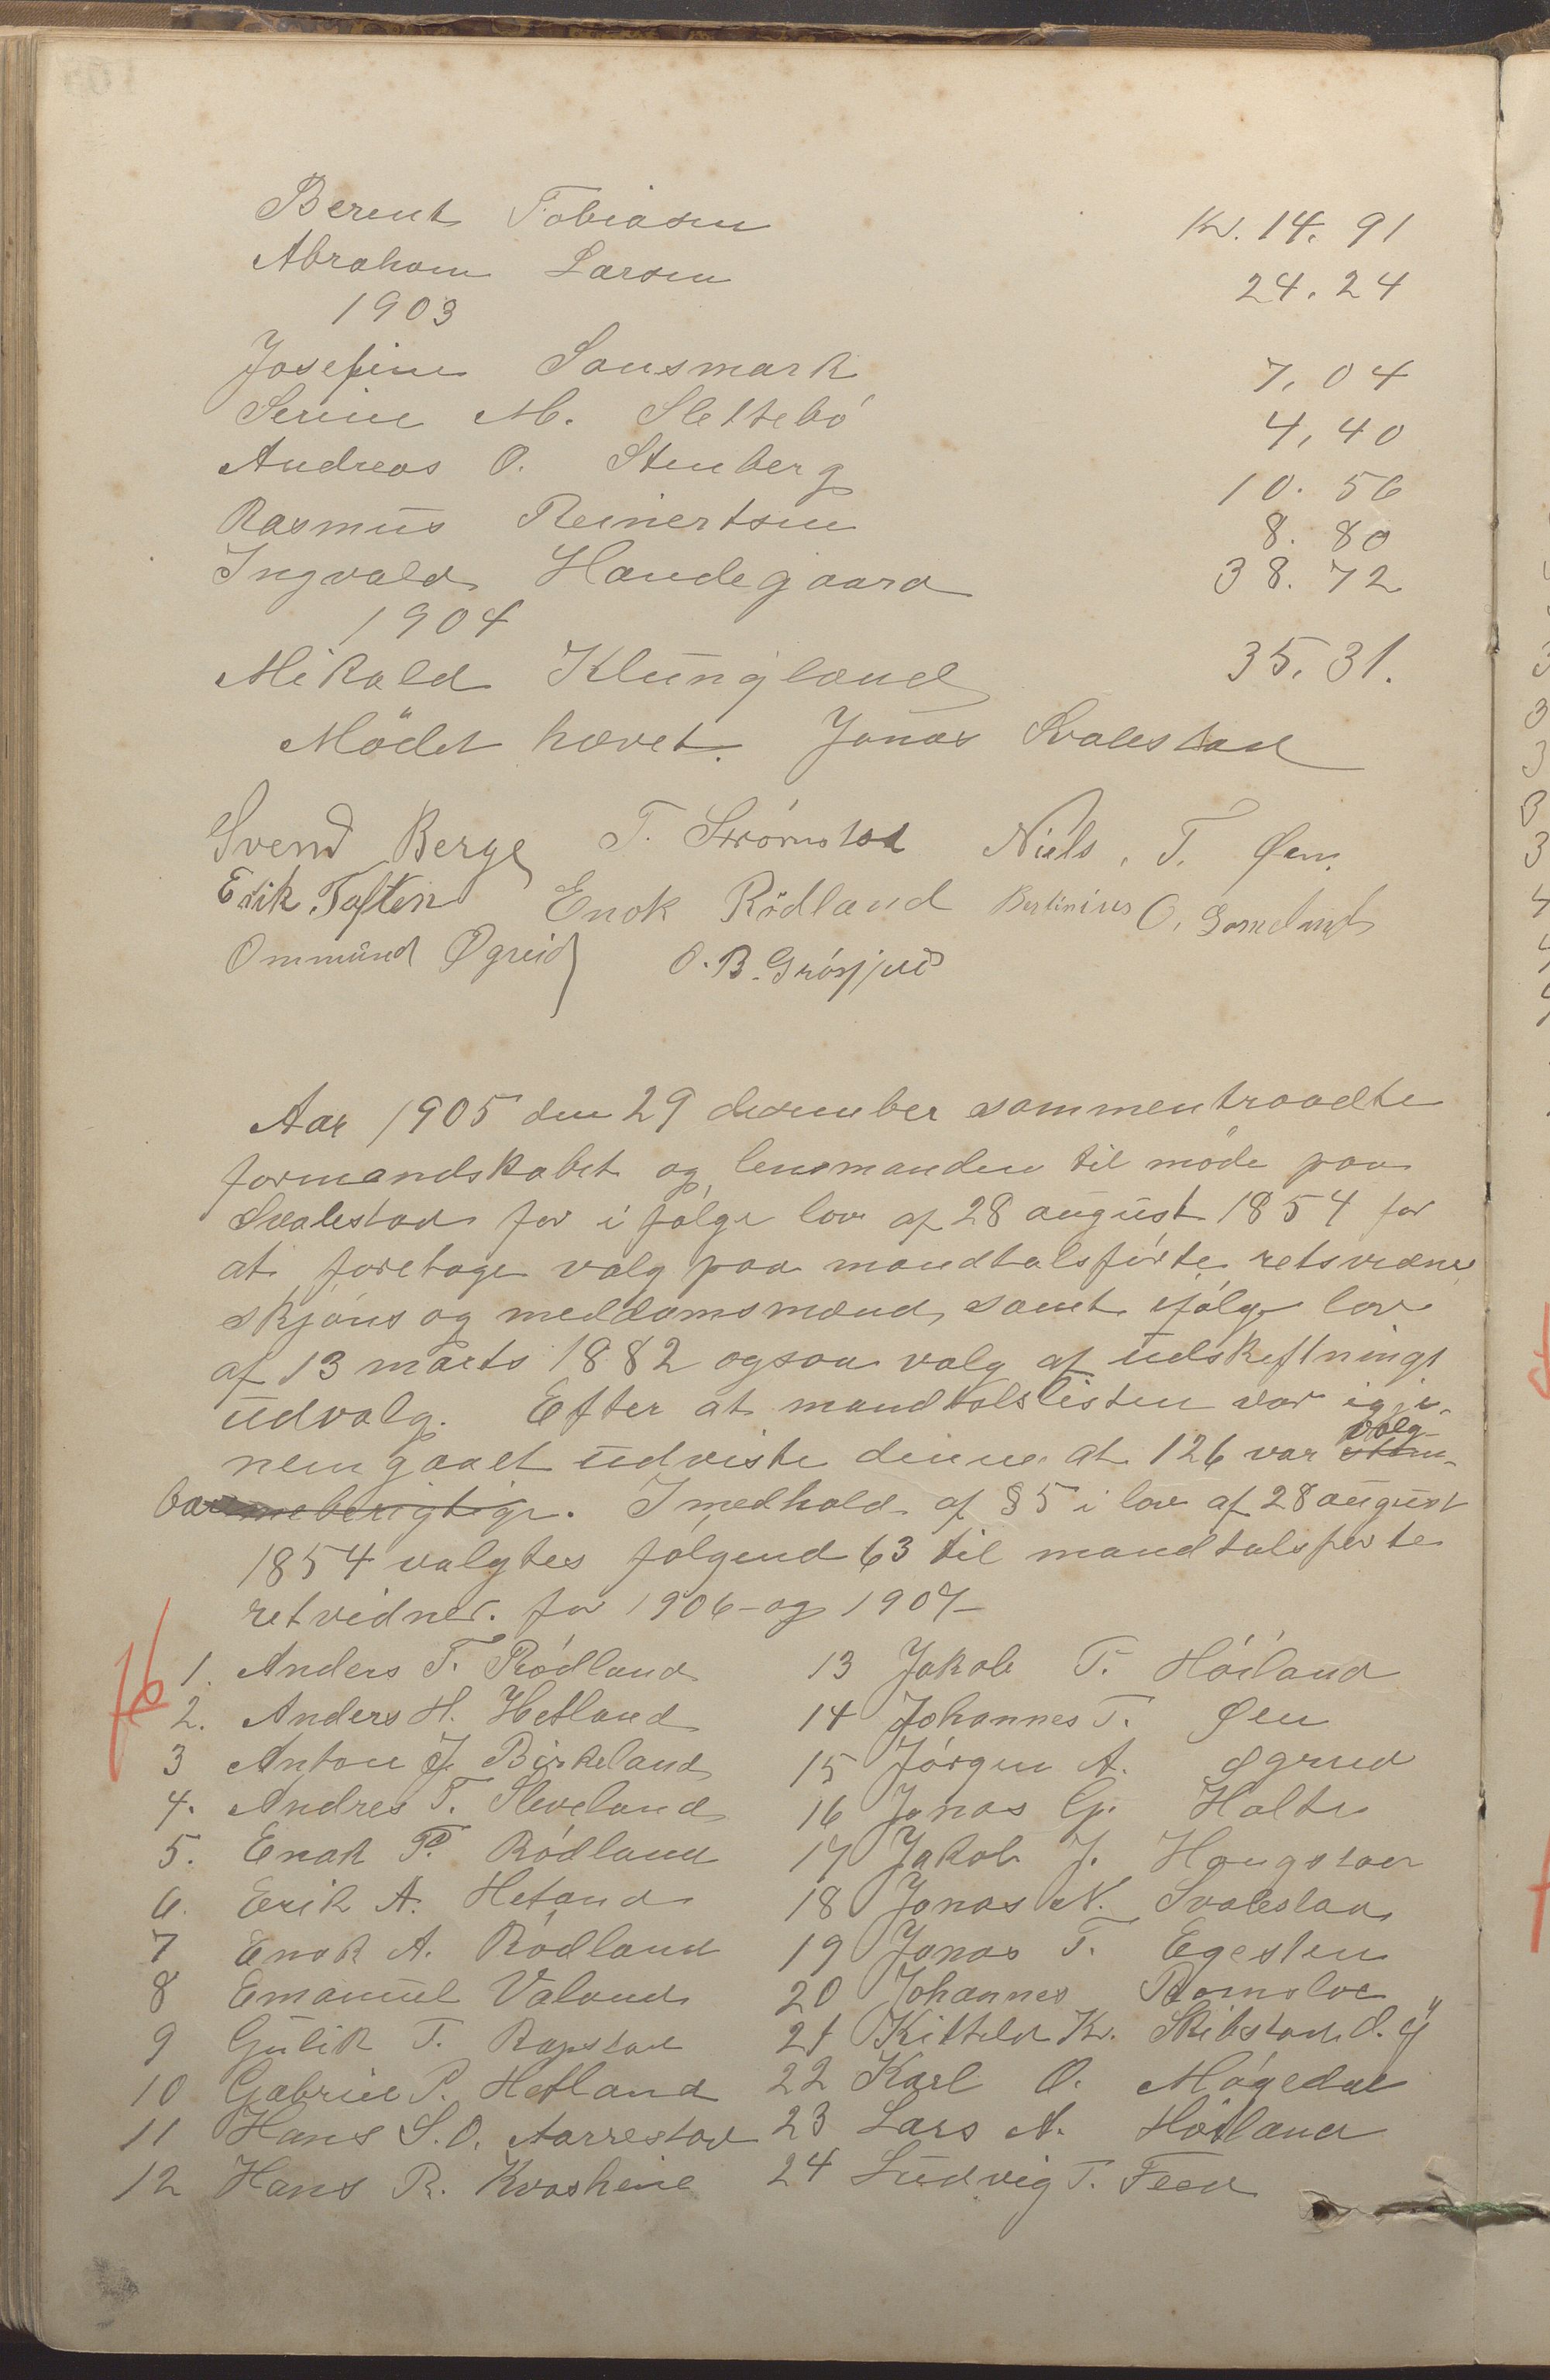 Berent Tobiasen Kr. 14. 91
Abraham Larsen 24. 24
1903
Josefine Sansmark 7, 04
Serine M. Slettebø 4, 40
Andreas O. Stenberg 10. 56
Rasmus Reinertsen 8. 80
Ingvald Haudegaard 38. 72
1904
Mikald Klungland 35. 31.
Mödet hævet. Jonas Svalestad
Svend Berge T. Strømstad Niels. T. Øen.
Erik Toften Enok Rödland Bertinius O.
Ommund Øgreid O. B. Grøsfjeld
Aar 1905 den 29 december sammentraadte
formandskabet og lensmanden til møde paa
Svalestad for i følge lov af 28 august 1854 for
at foretage valg paa mandtalsførte retsvidner
skjøns og meddomsmænd, samt ifølge lov
af 13 marts 1882 ogsaa valg af udskiftnings
udvalg. Efter at mandtalslisten var igje-
nemgaaet udviste denne at 126 var valg-
bar. I medhold af § 5 i lov af 28 august
1854 valgtes følgend 63 til mandtalsførte
retvidner. for 1906 - og 1907 -
1. Anders T. Rødland
2. Anders H. Hetland
3 Anton J. Birkeland
4. Andres T. Sleveland
5. Enok P. Rødland
6. Erik A. Hetand
7 Enok A. Rødland
8 Emanuel Valand
9 Gulik T. Rapstad
10 Gabriel P. Hetland
11 Hans S. O. Aarrestad
12 Hans R. Kvasheie
13 Jakob T. Høiland
14 Johannes T. Øen
15 Jørgen A. Øgreid
16 Jonas G. Halte
17 Jakob J. Haugstad
18 Jonas N. Svalestad
19 Jonas T. Egesten
20 Johannes Ramsloe
21 Kittild Kr. Skibstad d. y
22 Karl O. Møgedal
23 Lars A. Høiland
24 Ludvig T. Feed